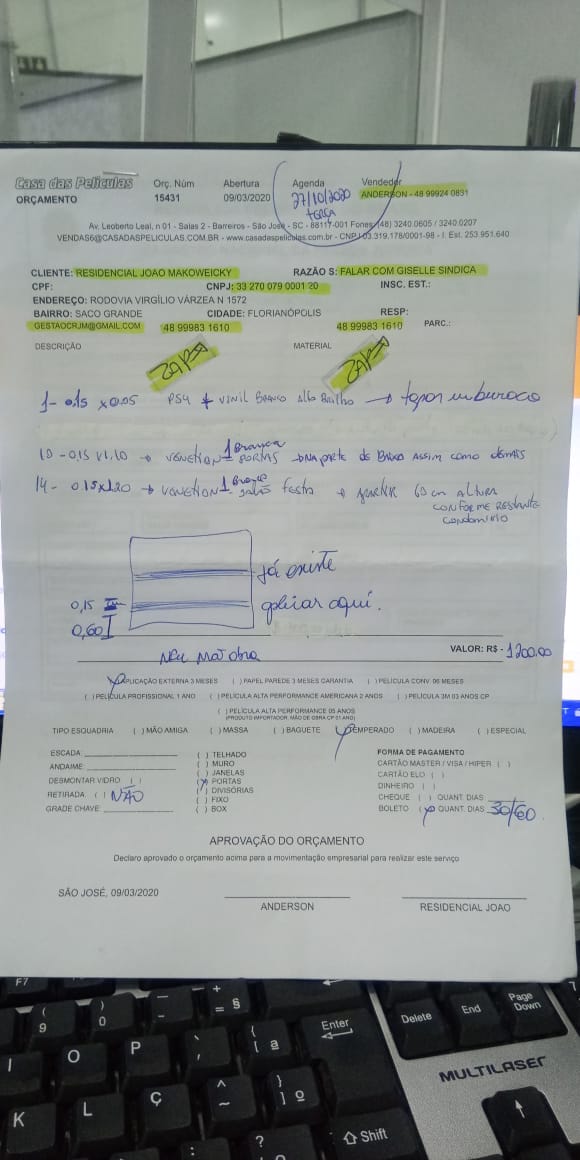 Casa das Películas Orç. Núm Abertura Agenda Vendedor
ORÇAMENTO 15431 09/03/2020 27/10/2020 ANDERSON - 48 99924 0831
terça
Av. Leoberto Leal, n 01 - Salas 2 - Barreiros - São José - SC - 88117-001 Fones (48) 3240.0605 / 3240.0207
VENDAS6@CASADASPELICULAS.COM.BR - www.casadaspeliculas.com.br - CNPJ 03.319.178/0001-98 - I. Est. 253.951.640
CLIENTE: RESIDENCIAL JOAO MAKOWEICKY RAZÃO S: FALAR COM GISELLE SINDICA
CPF: CNPJ: 33 270 079 0001 20 INSC. EST.:
ENDEREÇO: RODOVIA VIRGÍLIO VÁRZEA N 1572
BAIRRO: SACO GRANDE CIDADE: FLORIANÓPOLIS RESP:
GESTAOCRJM@GMAIL.COM 48 99983 1610 48 99983 1610 PARC.:
DESCRIÇÃO ZAP MATERIAL ZAP
1- 0,15 x 0,05 PS4 + VINIL BRANCO Alto Brilho → tapar um buraco
10 - 0,15 x 1,10 → VENETION 1 Branca PORTAS → NA PARTE DE BAIXO ASSIM COMO DEMAIS
14 - 0,15x1,20 → VENETION 1 Branca salão festa 60 cm ALTURA
CONFORME RESTANTE
CONDOMINIO
já existe
0,15 aplicar aquí.
0,60
Mat obra VALOR: R$ - 1200,00
APLICAÇÃO EXTERNA 3 MESES ( ) PAPEL PAREDE 3 MESES GARANTIA ( ) PELÍCULA CONV. 06 MESES
( ) PELÍCULA PROFISSIONAL 1 ANO ( ) PELÍCULA ALTA PERFORMANCE AMERICANA 2 ANOS ( ) PELÍCULA 3M 03 ANOS CP
( ) PELÍCULA ALTA PERFORMANCE 05 ANOS
(PRODUTO IMPORTADOR, MÃO DE OBRA CP 01 ANO)
TIPO ESQUADRIA ( ) MÃO AMIGA ( ) MASSA ( ) BAGUETE TEMPERADO ( ) MADEIRA ( ) ESPECIAL
ESCADA: ( ) TELHADO FORMA DE PAGAMENTO
ANDAIME: ( ) MURO CARTÃO MASTER / VISA / HIPER ( )
DESMONTAR VIDRO ( ) ( ) JANELAS CARTÃO ELO ( )
RETIRADA ( ) NÃO (x) PORTAS DINHEIRO ( )
GRADE CHAVE: ( ) DIVISÓRIAS CHEQUE ( ) QUANT. DIAS
( ) FIXO BOLETO (x) QUANT. DIAS 30/60
( ) BOX
APROVAÇÃO DO ORÇAMENTO
Declaro aprovado o orçamento acima para a movimentação empresarial para realizar este serviço
SÃO JOSÉ, 09/03/2020
ANDERSON RESIDENCIAL JOAO
F7
( 9 ) 0 - + = § Enter Delete End Page Down
I O P { [ ª MULTILASER
K L Ç ^ ~ } ] º
: ? Shift